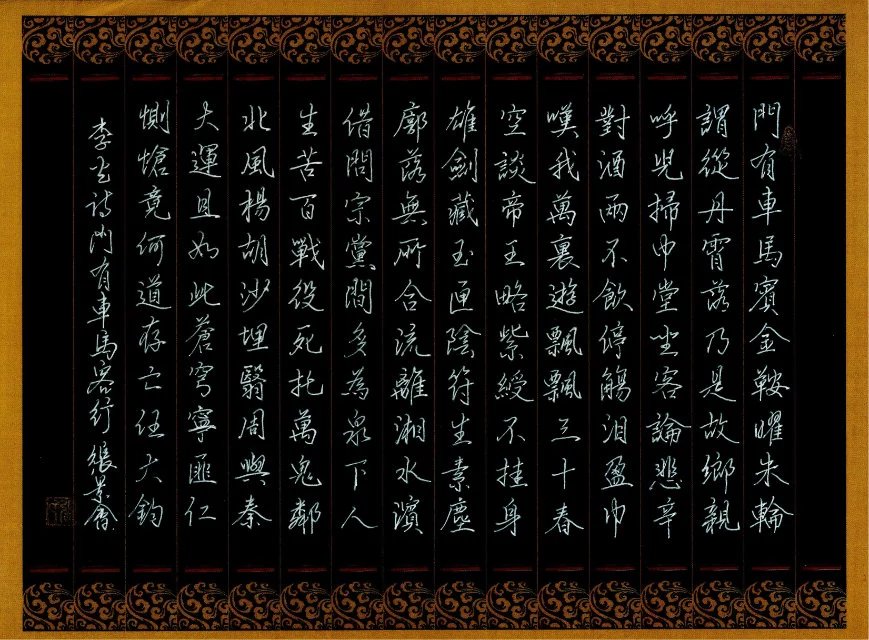 門有車馬賓金鞍曜朱輪
謂從丹霄落乃是故鄉親
呼兒掃中堂坐客論悲辛
對酒兩不飲停觴淚盈巾
嘆我萬裏遊飄飄三十春
空談帝王略紫綬不挂身
雄劍藏玉匣陰符生素塵
廓落無所合流離湘水濱
借問宗黨間多為泉下人
生苦百戰役死托萬鬼鄰
北風揚胡沙埋翳周與秦
大運且如此蒼穹寧匪仁
惻愴竟何道存亡任大鈞
李白詩門有車馬客行張景會